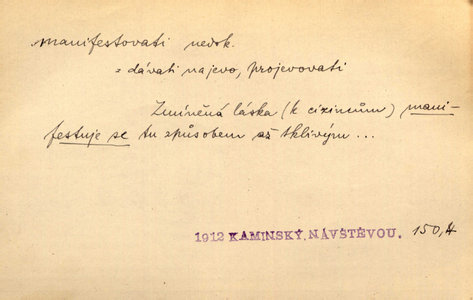 manifestovati nedok.
= dávati najevo, projevovati
Zmíněná láska (k cizincům) mani-
festuje se tu způsobem až tklivým ...
1912 KAMINSKÝ, NÁVŠTĚVOU. 150,